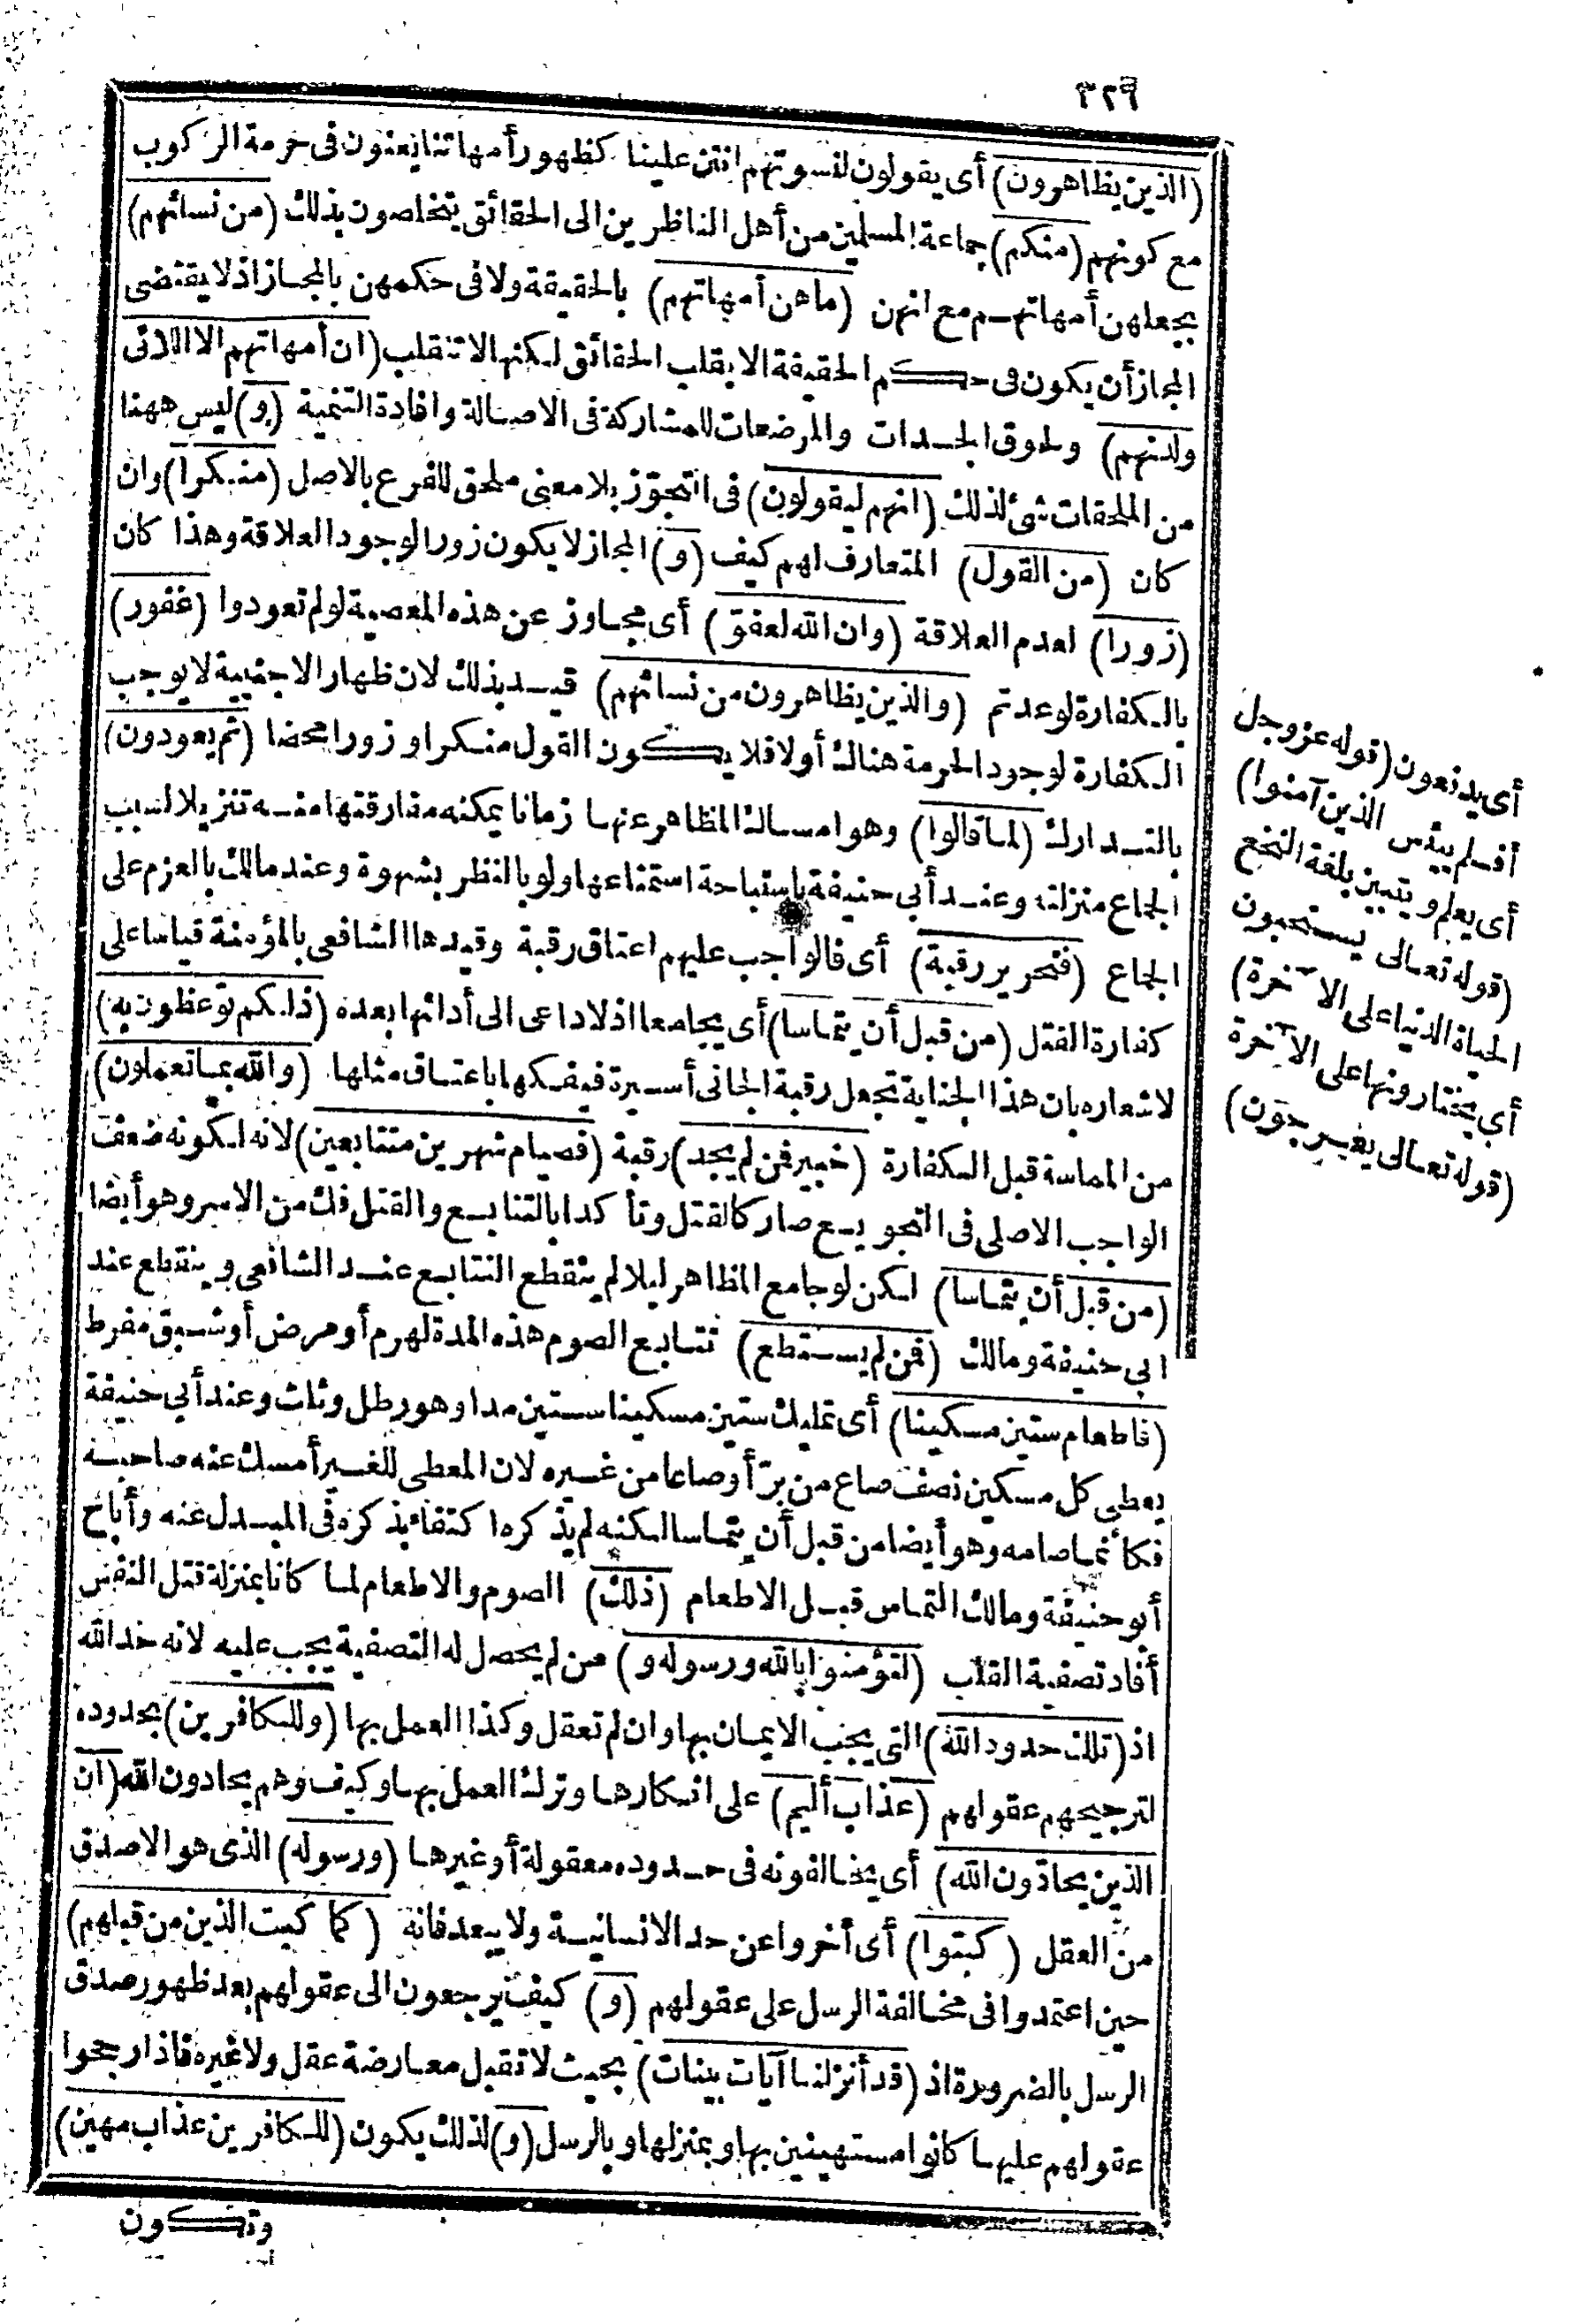 ٣٢٩
(الذين يظاهرون) أى يقولون لنسوتهم انتن علينا كظهور أمهاتنا يعنون فى حرمة الركوب
مع كونهم (منكم) جماعة المسلمين من أهل الناظرين الى الحقائق يتخلصون بذلك (من نسائهم)
بجعلهن أمهاتهم مع انهن (ماهن أمهاتهم) بالحقيقة ولا فى حكمهن بالمجاز اذ لا يقتضى
المجاز أن يكون فى حكم الحقيقة الا بقلب الحقائق لكنها لا تنقلب (ان أمهاتهم الا اللائى
ولدنهم) ولحوق الجدات والمرضعات للمشاركة فى الاصالة وافادة التنمية (و) ليس ههنا
من الملحقات شئ لذلك (انهم ليقولون) فى التجوّز بلا معنى ملحق للفرع بالاصل (منكرا) وان
كان (من القول) المتعارف لهم كيف (و) المجاز لا يكون زورا لوجود العلاقة وهذا كان
(زورا) لعدم العلاقة (وان الله لعفوّ) أى مجاوز عن هذه المعصية لو لم تعودوا (غفور)
بالكفارة لو عدتم (والذين يظاهرون من نسائهم) قيد بذلك لان ظهار الاجنبية لا يوجب
الكفارة لوجود الحرمة هناك أولا فلا يكون القول منكرا وزورا محضا (ثم يعودون)
بالتدارك (لما قالوا) وهو امساك المظاهر عنها زمانا يمكنه مفارقتها منه تنزيلا لسبب
الجماع منزلته وعند أبى حنيفة باستباحة استمتاعها ولو بالنظر بشهوة وعند مالك بالعزم على
الجماع (فتحرير رقبة) أى فالواجب عليهم اعتاق رقبة وقيدها الشافعى بالمؤمنة قياسا على
كفارة القتل (من قبل أن يتماسا) أى يجامعا اذ لا داعى الى أدائها بعده (ذلكم توعظون به)
لاشعاره بان هذا الجناية تجعل رقبة الجانى أسيرة فيفكها باعتاق مثلها (والله بما تعملون)
من المماسة قبل الكفارة (خبير فمن لم يجد) رقبة (فصيام شهرين متتابعين) لانه لكونه ضعف
الواجب الاصلى فى التجويع صار كالقتل وتأكدا بالتتابع والقتل فك من الاسر وهو أيضا
(من قبل أن يتماسا) لكن لو جامع المظاهر ليلا لم ينقطع التتابع عند الشافعى وينقطع عند
ابى حنيفة ومالك (فمن لم يستطع) تتابع الصوم هذه المدة لهرم أو مرض أو شبق مفرط
(فاطعام ستين مسكينا) أى تمليك ستين مسكينا ستين مدا وهو رطل وثلث وعند أبى حنيفة
يعطى كل مسكين نصف صاع من برّ أو صاعا من غيره لان المعطى للغير أمسك عنه صاحبه
فكأنما صامه وهو أيضا من قبل أن يتماسا لكنه لم يذكره اكتفاء بذكره فى المبدل عنه وأباح
أبو حنيفة ومالك التماس قبل الاطعام (ذلك) الصوم والاطعام لما كانا بمنزلة قتل النفس
أفاد تصفية القلب (لتؤمنوا بالله ورسوله و) من لم يحصل له التصفية يجب عليه لانه حد الله
اذ (تلك حدود الله) التى يجب الايمان بها وان لم تعقل وكذا العمل بها (وللكافرين) بحدوده
لترجيحهم عقولهم (عذاب أليم) على انكارها وترك العمل بها وكيف وهم يحادون الله (ان
الذين يحادّون الله) أى يخالفونه فى حدوده معقولة أو غيرها (ورسوله) الذى هو الاصدق
من العقل (كبتوا) أى أخروا عن حد الانسانية ولا يبعد فانه (كما كبت الذين من قبلهم)
حين اعتمدوا فى مخالفة الرسل على عقولهم (و) كيف يرجعون الى عقولهم بعد ظهور صدق
الرسل بالضرورة اذ (قد أنزلنا آيات بينات) بحيث لا تقبل معارضة عقل ولا غيره فاذا رجحوا
عقولهم عليها كانوا مستهينين بها وبمنزلها وبالرسل (و) لذلك يكون (للكافرين عذاب مهين)
وتكون
أى يدفعون (قوله عز وجل
أفلم ييئس الذين آمنوا)
أى يعلم ويتبين بلغة النخع
(قوله تعالى يستحبون
الحياة الدنيا على الآخرة)
أى يختارونها على الآخرة
(قوله تعالى يعرجون)